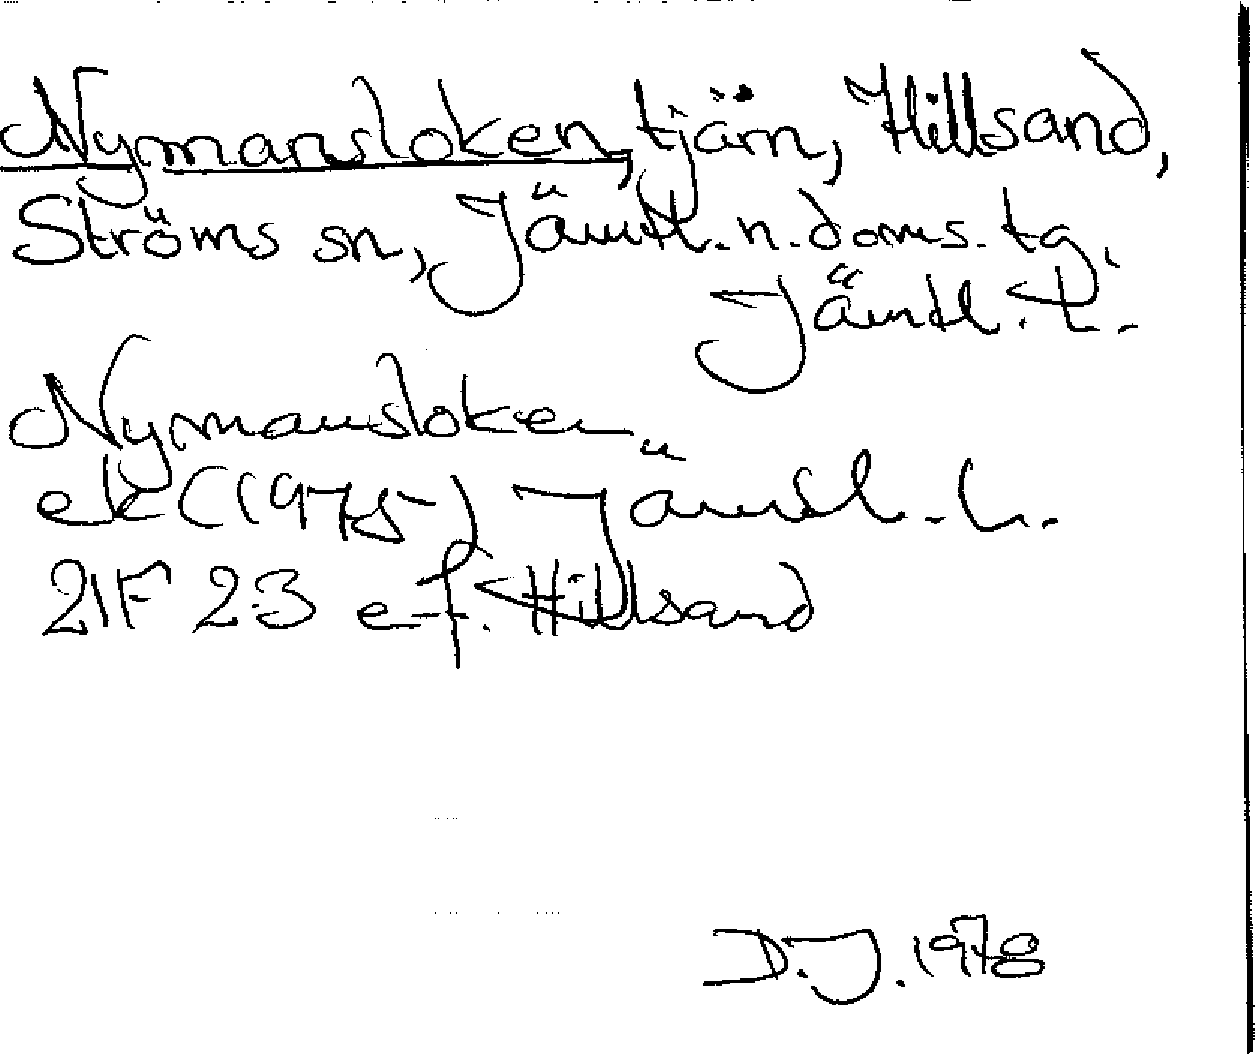 Nymansloken, tjärn, Hillsand,
Ströms sn, Jämtl. n. doms. tg,
Jämtl. l.
Nymansloken
ek (1975) Jämtl. l.
21F 23 e-f. Hillsand
D.J. 1978